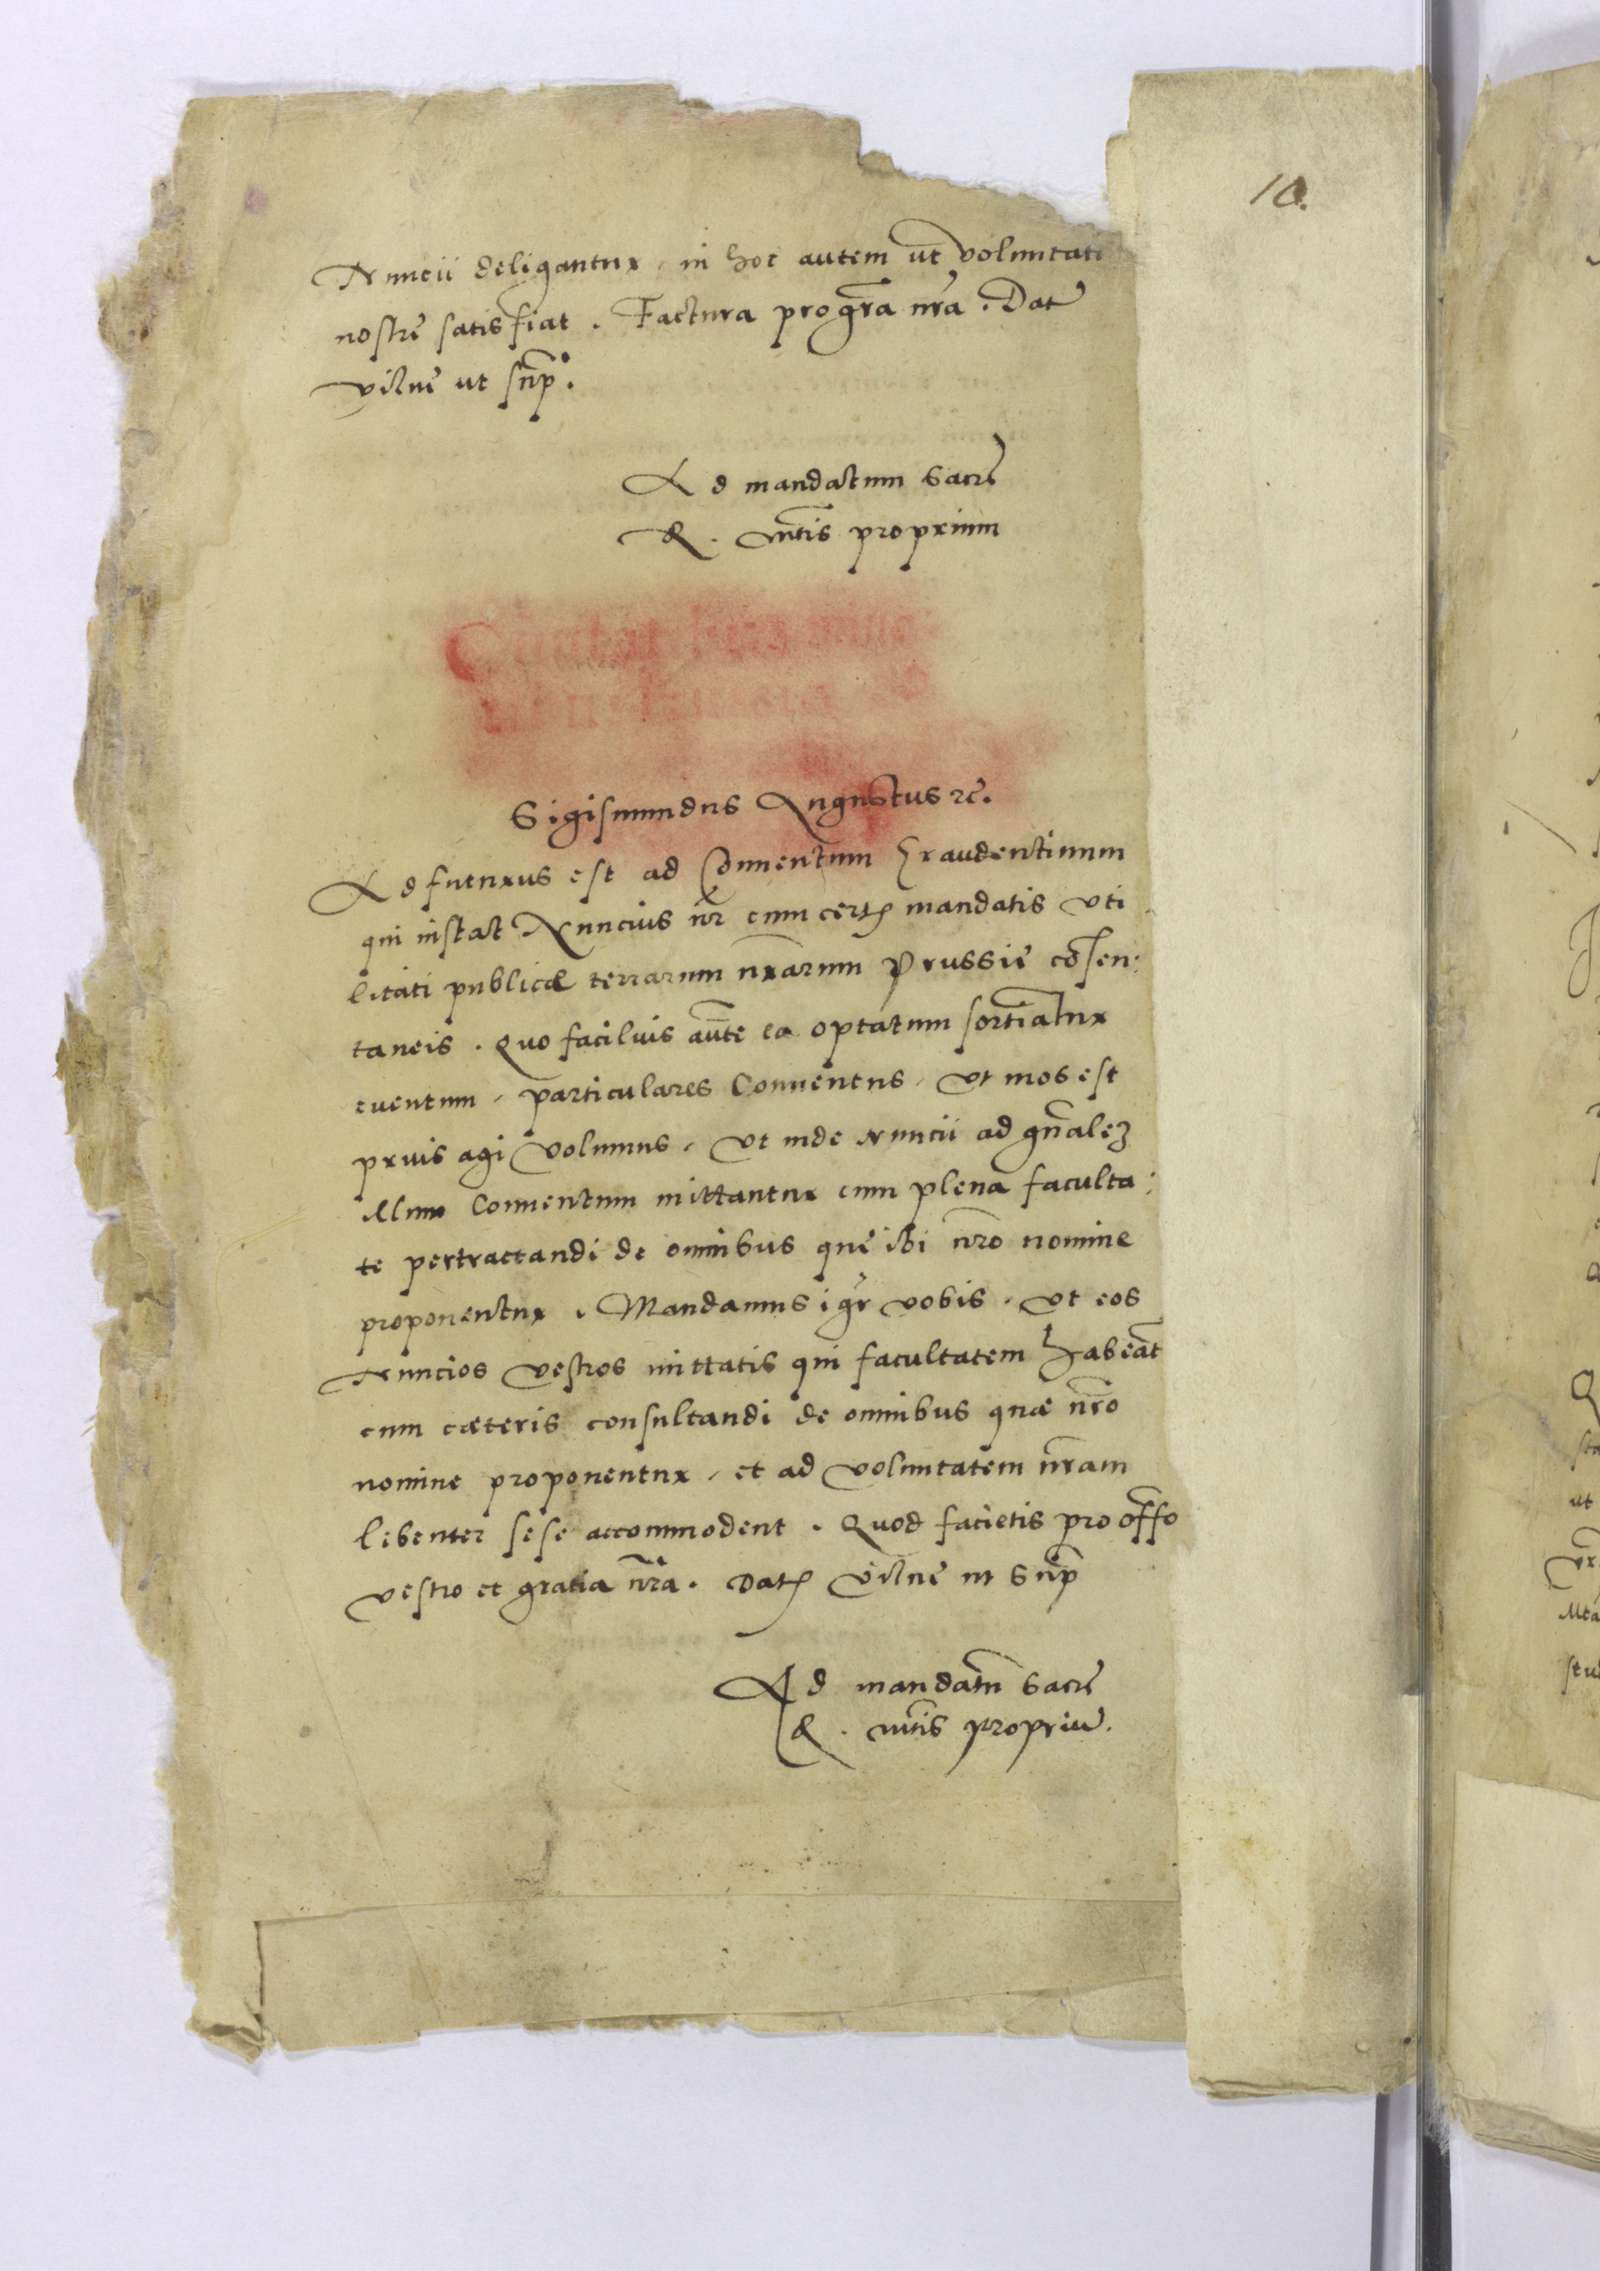 10.
Nuncii deligantur, in hoc autem ut voluntati
nostrę satisfiat. Factura pro gr̃a nr̃a. Dat
Vilnę ut sup̃.
Ad mandatum Sacrę
R. Mtis̃ proprium
Sigismundus Augustus rc̃.
Adfuturus est ad Conuentum Graudentinum
qui instat Nuncius nr̃ cum certis mandatis uti
litati publicæ terrarum nr̃arum Prussię cõsen:
taneis. Quo facilius aut̃e ea optatum sortiãtur
euentum, particulares Conuentus, ut mos est
prius agi volumus, ut inde Nuncii ad gñalez
illum Conuentum mittantur cum plena faculta:
te pertractandi de omnibus quę ibi nr̃o nomine
proponentur. Mandamus igr̃ vobis, ut eos
Nuncios vestros mittatis qui facultatem habeãt
cum cæteris consultandi de omnibus quæ nr̃o
nomine proponentur, et ad voluntatem nr̃am
libenter sese accommodent. Quod facietis pro off̃o
vestro et gratia nr̃a. Dat Vilnę ut Sup̃
Ad mandatũ Sacrę
R. Mtis̃ propriũ.